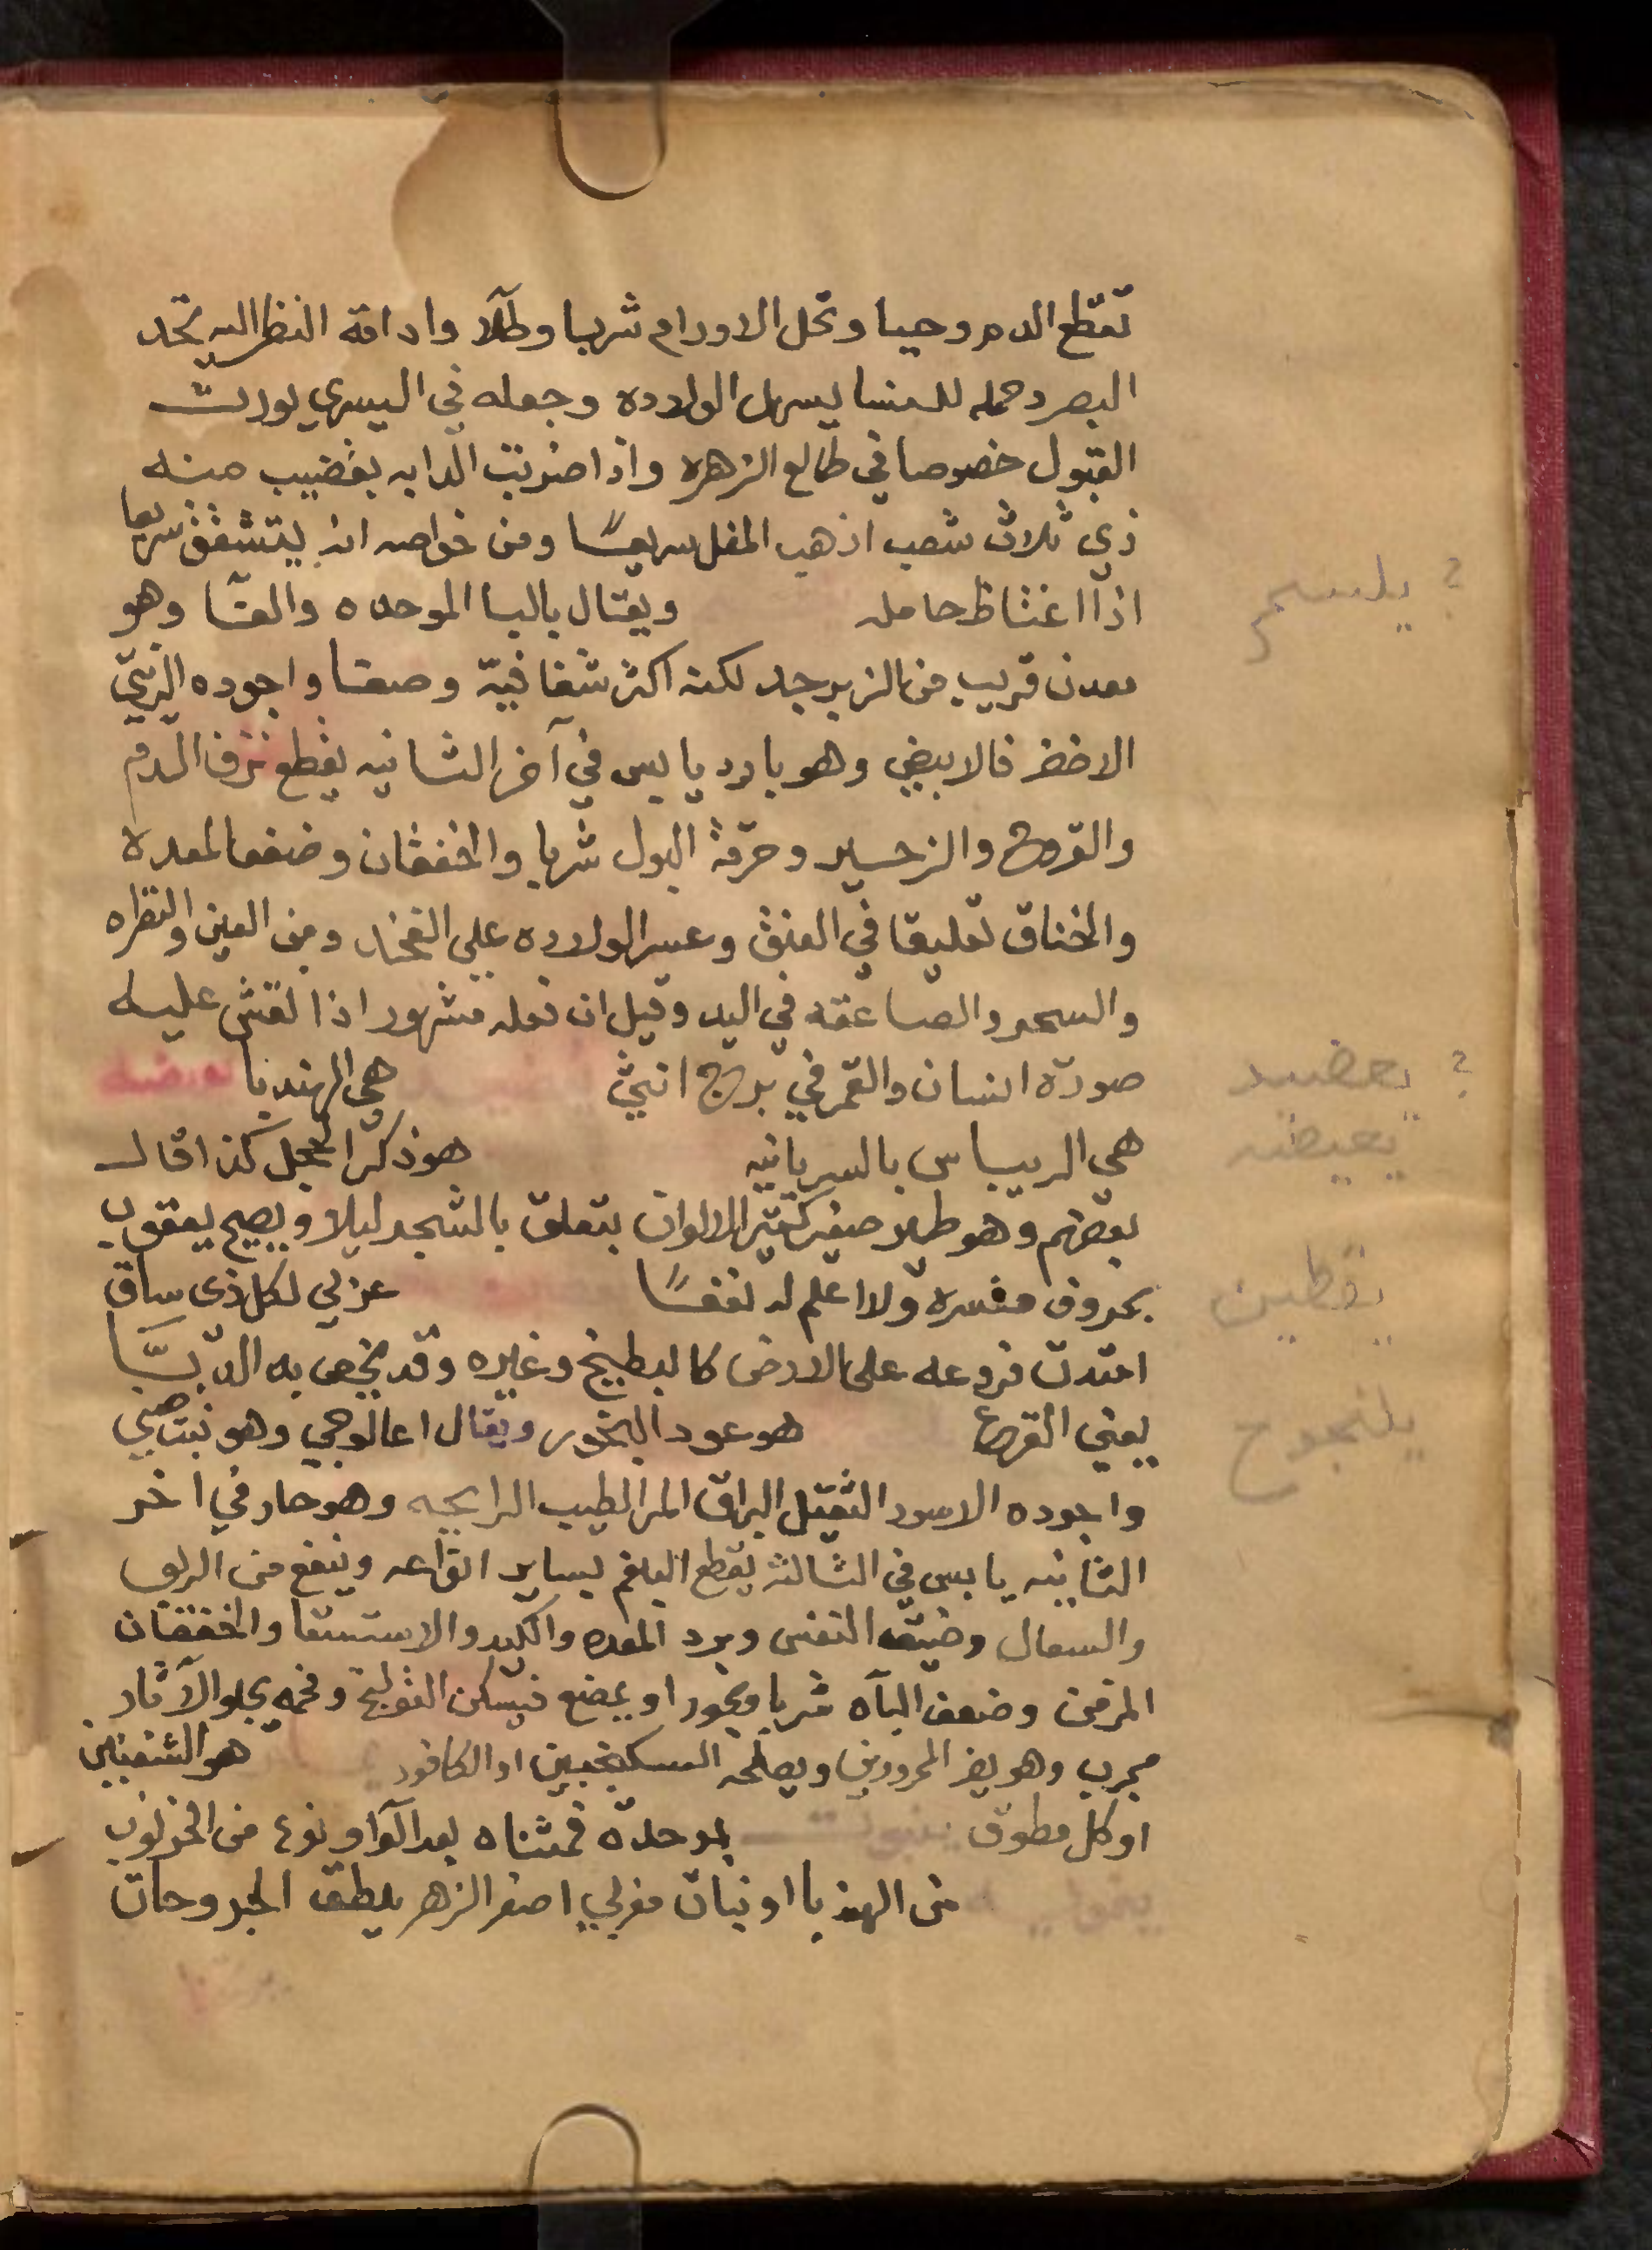 تقطع الدم وحيا وتحل الاورام شربا وطلآ وادامة النظر اليه تحد
البصر وحمله للنسا يسهل الولاده وجعله في اليسري يورث
القبول خصوصا في طالع الزهره واذا ضربت الدابه بقضيب منه
ذي ثلاث شعب اذهب المغل سريعًا ومن خواصه انه يتشقق سريعا
اذا اغتاظ حامله ويقال بالبا الموحده والفا وهو
؟ يلسم
معدن قريب من الزبرجد لكنه اكثر شفافية وصفا واجوده الزيتي
الاخضر فالابيض وهو بارد يابس في آخر الثانيه يقطع نزف الدم
والقروح والزحير وحرقة البول شربا والخفقان وضعف المعدة
والخناق تعليقا في العنق وعسر الولاده علي الفخذ ومن العين والنظره
والسحر والصاعقه في اليد وقيل ان فعله مشهور اذا نقش عليه
صورة انسان والقمر في برج انثي هي الهندبا
؟ يعضيد
هي الريباس بالسريانيه هو ذكر الحجل كذا قال
يعيضه
بعضهم وهو طير صغير كثير الالوان يتعلق بالشجر ليلا ويصيح يعقوب
بحروف مفسره ولا اعلم له نفعًا عزبي لكل ذي ساق
يقطين
امتدت فروعه على الارض كالبطيخ وغيره وقد يخص به الدبّا
يعني القرع هو عود البخور ويقال اغالوجي وهو نبت صيني
يلنجوج
واجوده الاسود الثقيل البراق المر الطيب الرايحه وهو حار في اخر
الثانيه يابس في الثالثه يقطع البلغم بساير انواعه وينفع من الربو
والسعال وضيق النفس وبرد المعده والكبد والاستسقا والخفقان
المزمن وضعف البآه شربا وبخورا ويمضغ فيسكن القولنج وفحمه يجلو الآثار
مجرب وهو يضر المحرورين ويصلحه السكنجبين او الكافور هو الشفنين
او كل مطوق ينبوت بموحدة فمثناه بعد الواو نوع من الخرنوب
من الهندبا او نبات مغربي اصفر الزهر يلطف الجروحات